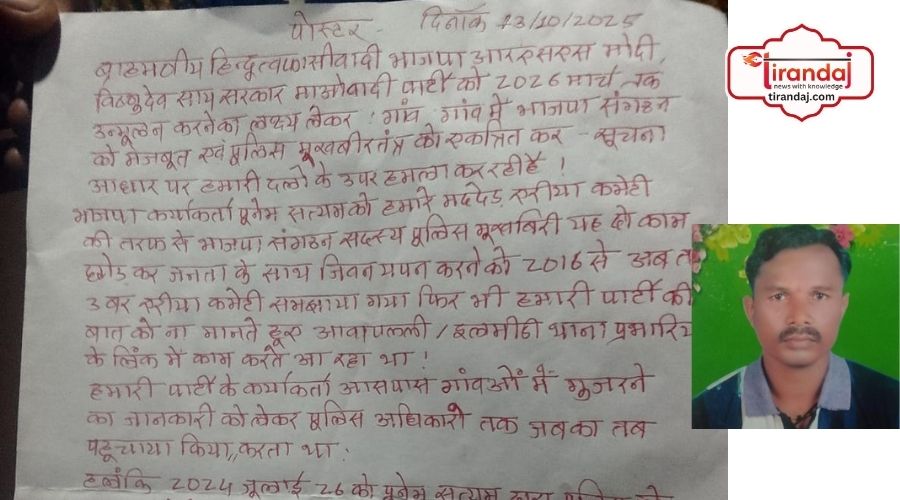 पोस्टर - दिनाक 13/10/2025
ब्राहमणीय हिन्दूत्वफासीवादी भाजपा आरएसएस मोदी,
विष्णुदेव साय सरकार माओवादी पार्टी को 2026 मार्च तक
उन्मूलन करनेका लक्ष्य लेकर ! गांव - गांव में भाजपा संगठन
को मेजबूत एवं पूलिस मूखबीर तंत्र को एकत्रित कर - सूचना
आधार पर हमारी दलो के उपर हमला कर रही है !
भाजपा कर्याकर्ता पूनेम सत्यम को हमारे मददेड़ एरीया कमेटी
की तरफ से भाजपा संगठन सदस्य पूलिस मूखबिरी यह दो काम
छोड कर जनता के साथ जिवन यपन करने को 2016 से अब त
3 बर एरीया कमेटी समझाया गया फिर भी हमारी पार्टी की
बात को ना मानते हूए आवापल्ली / इलमीडी थाना प्रभारिय
के लिंक में काम करते आ रहा था !
हमारी पार्टी के कर्याकर्ता आसपास गांवओं में गूजरने
का जानकारी को लेकर पूलिस अधिकारी तक जबका तब
पहूचाया किया,, करता था !
हलांकि 2024 जूलाई 26 को पूनेम सत्यम
Tirandaj
news with knowledge
tirandaj.com